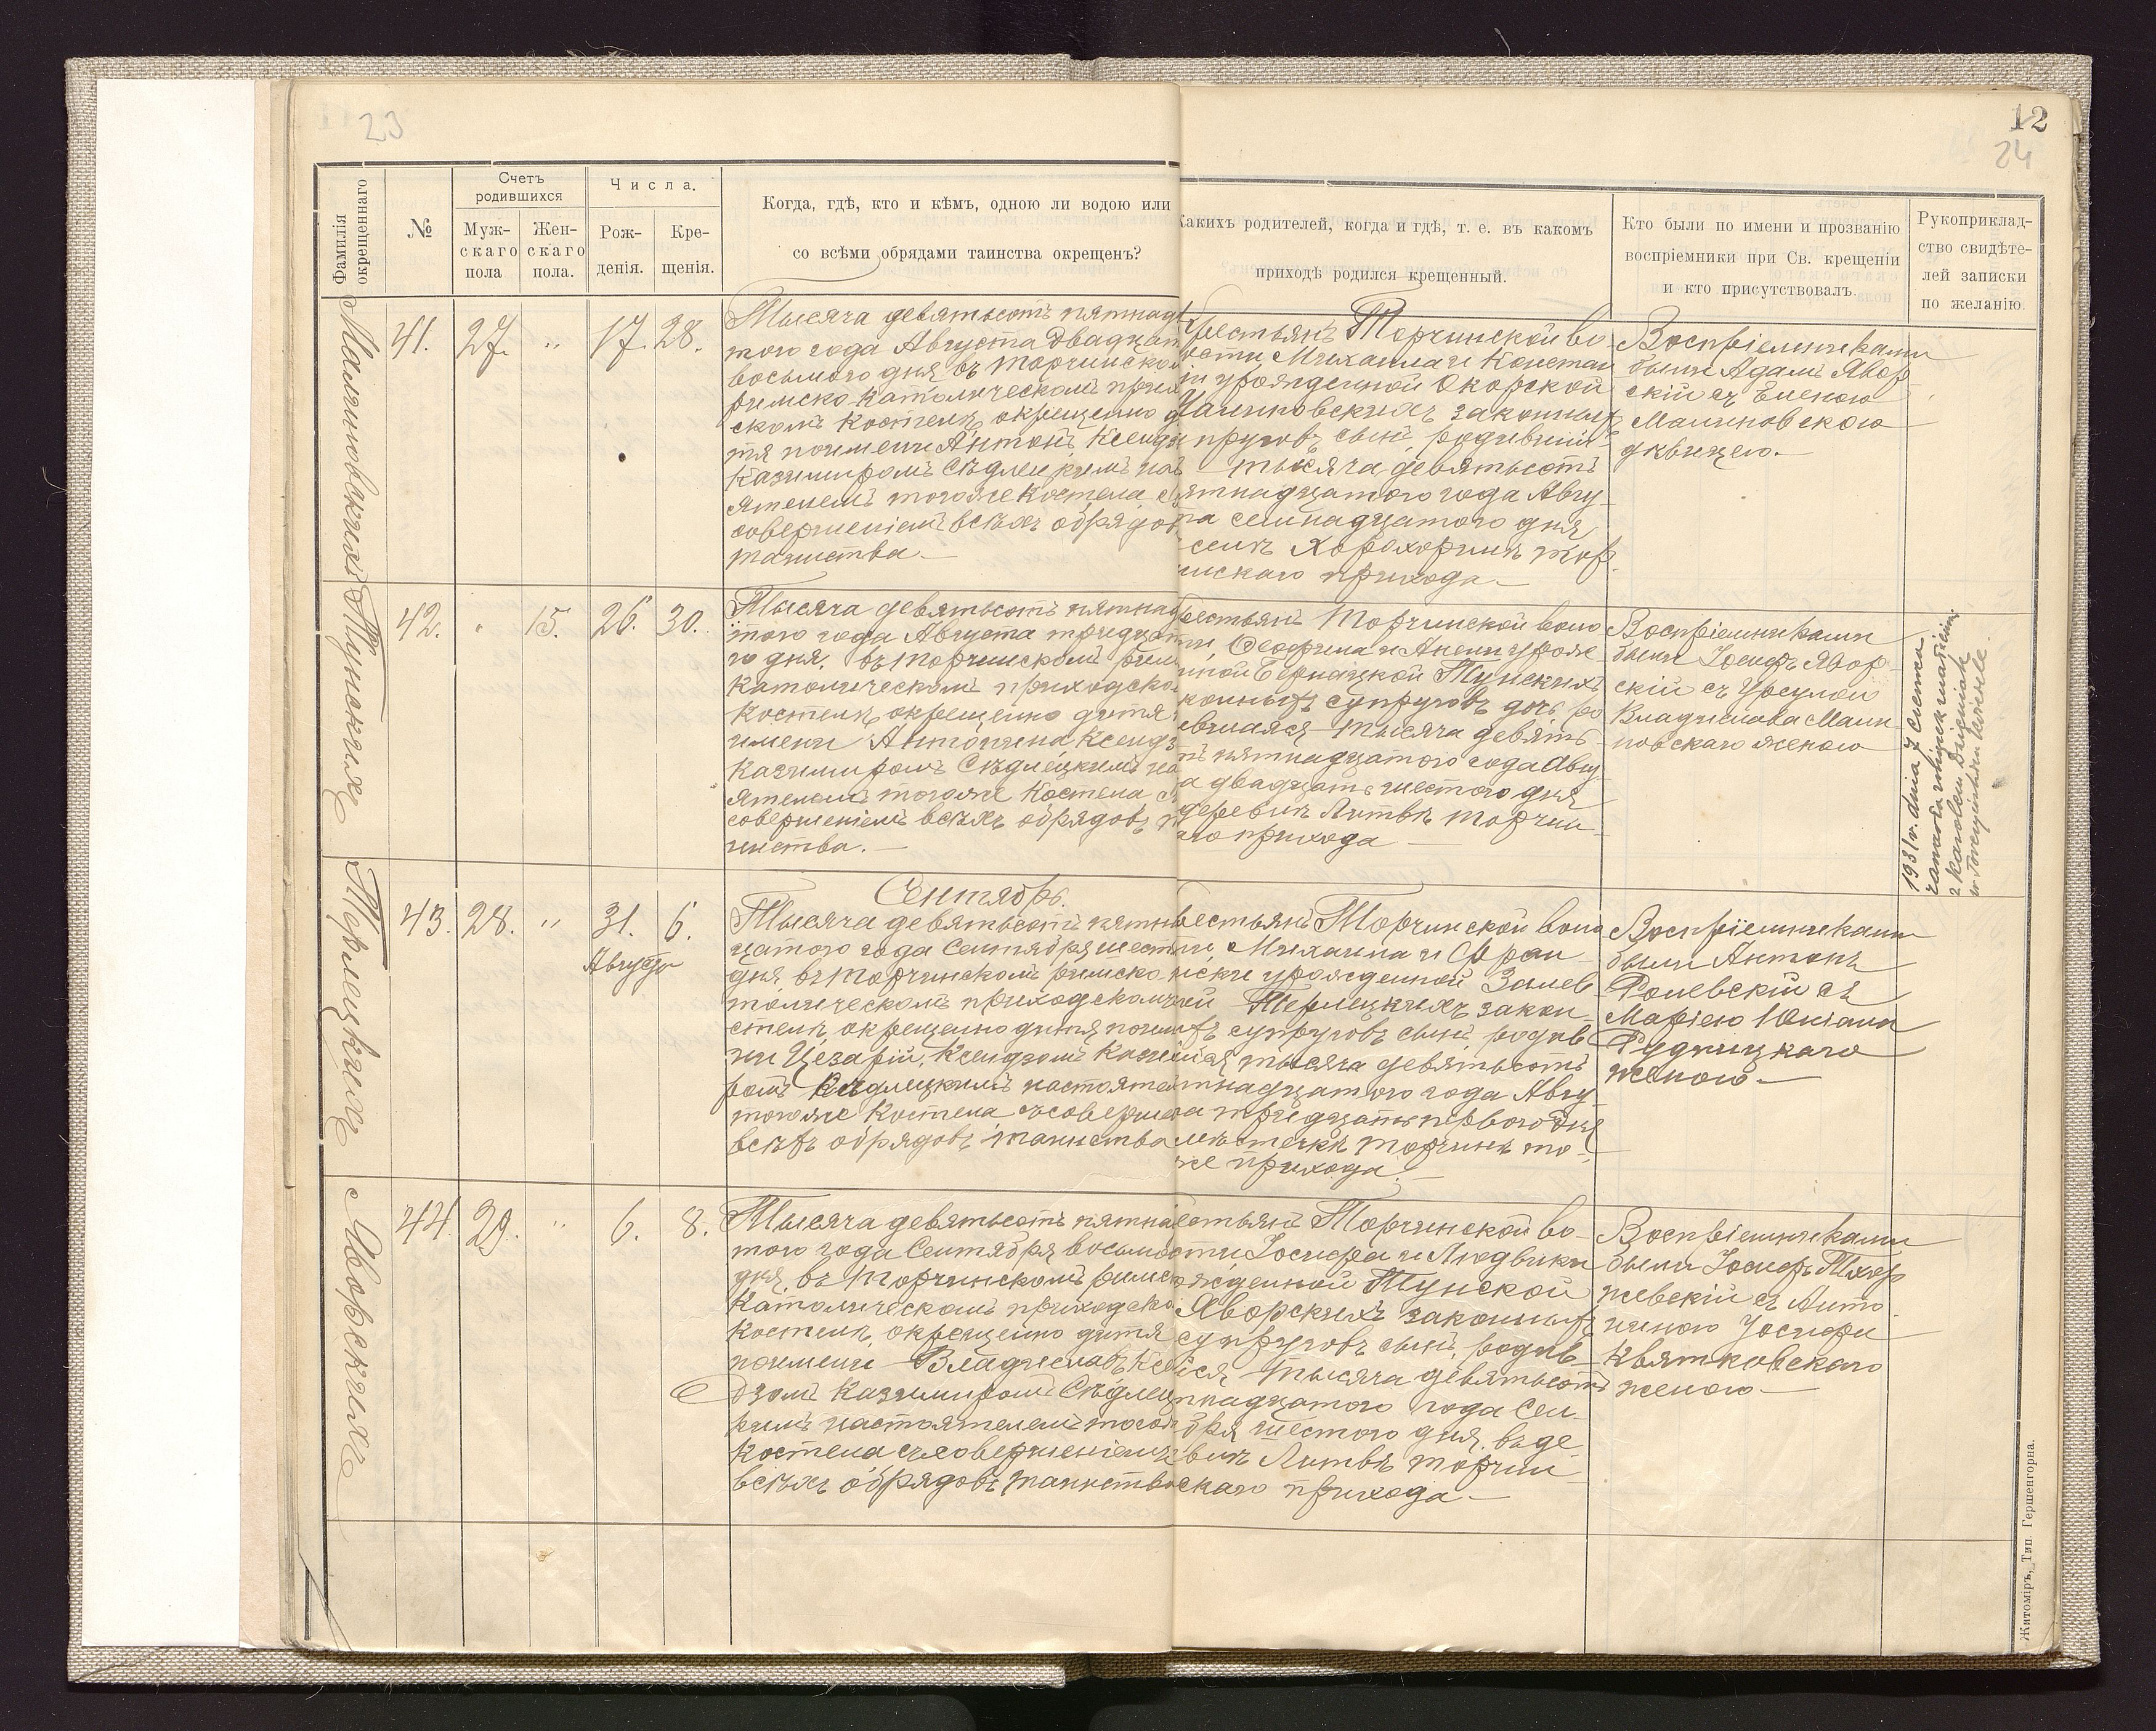 23
12
24
Фамилія окрещеннаго
№
Счетъ родившихся
Муж-
скаго
пола
Жен-
скаго
пола.
Числа.
Рож-
денія.
Кре-
щенія.
Когда, гдѣ, кто и кѣмъ, одною ли водою или
со всѣми обрядами таинства окрещенъ?
Какихъ родителей, когда и гдѣ, т. е. въ какомъ
приходѣ родился крещенный.
Кто были по имени и прозванію
воспріемники при Св. крещеніи
и кто присутствовалъ.
Рукоприклад-
ство свидѣте-
лей записки
по желанію.
Малиновскій
41. 27. " 17. 28.
Тысяча девятьсотъ пятнад
того года Августа двадцат
восьмого дня, въ Торчинско
римско-католическомъ прих
скомъ костелѣ, окрещено д
тя по имени Антонъ, Ксенд
Казимиромъ Сѣдлецкимъ нас
ятелемъ тогоже костела с
совершеніемъ всѣхъ обрядов
таинства.—
крестьянъ Торчинской во-
ости Михаила и Констан
іи урожденной Окорской
Малиновскихъ законных
пруговъ сынъ, родивший
тысяча девятьсотъ
ятнадцатого года Авгу-
та семнадцатого дня
селѣ Хорохоринѣ Тор
инскаго прихода.—
Воспріемниками
были Адамъ Явор
скій съ Еленою
Малиновскою
дквицею.—
Тунскихъ
42. " 15. 26. 30.
Тысяча девятьсотъ пятнад
того года Августа тридцат
го дня, въ Торчинскомъ рим
католическомъ приходско
костелѣ, окрещено дитя
имени Антонина Ксендз
Казимиромъ Сѣдлецкимъ на
ятелемъ тогоже костела с
совершеніемъ всѣхъ обрядовъ т
инства.—
рестьянъ Торчинской воло
ти, Теофила и Анели урож
нной Бернацкой Тунскихъ
конныхъ супруговъ дочь, ро
ившаяся тысяча девять-
тъ пятнадцатого года Авгу
а двадцать шестого дня
деревнѣ Литвѣ Торчин
аго прихода—
Воспріемниками
были Іосифъ Явор-
скій съ Урсулой
Владислава Мали
новскаго женою
1931 r. dnia 7 czerwca
zawarła związek małżeński
z Karolem
w Torczyńskim kościele.
Терлецкихъ
Сентябрь.
43. 28. " 31. 6.
Августа
Тысяча девятьсотъ пятна
цатого года Сентября шест
дня, въ Торчинскомъ римско
толическомъ приходскомъ
стелѣ, окрещено дитя поим
ни Цезарій, Ксендзомъ Казим
ромъ Сѣдлецкимъ настояте
тогоже костела съ соверше
всѣхъ обрядовъ таинства
рестьянъ Торчинской воло
и, Михаила и Фран
иски урожденной Залев
ой Терлецкихъ закон-
ыхъ супруговъ сынъ, родив
ійся тысяча девятьсотъ
тнадцатого года Авгу
а тридцать первого дня
мѣстечкѣ Торчинѣ то-
же прихода.—
Воспріемниками
были Антонъ
Ролевскій съ
Маріею Юліана
Рудницкаго
женою.—
Яворскихъ
44. 29. " 6. 8.
Тысяча девятьсотъ пятна
того года Сентября восьмо
дня, въ Торчинскомъ римск
католическомъ приходско
костелѣ, окрещено дитя
поимени Владиславъ, Ксе
дзомъ Казимиромъ Сѣдлец
кимъ настоятелемъ тогож
костела съ совершеніемъ
всѣхъ обрядовъ таинства
естьянъ Торчинской во-
сти, Іосифа и Людвики
ожденной Тунской
Яворскихъ законных
супруговъ сынъ, родив-
йся тысяча девятьсотъ
тнадцатого года Сен-
бря шестого дня, въ де
вкѣ Литвѣ Торчин
скаго прихода.—
Воспріемниками
были Іосифъ Тхор
жевскій съ Анто
ниною Іосифа
Квятковскаго
женою.—
Житоміръ, Тип. Гершенгорна.